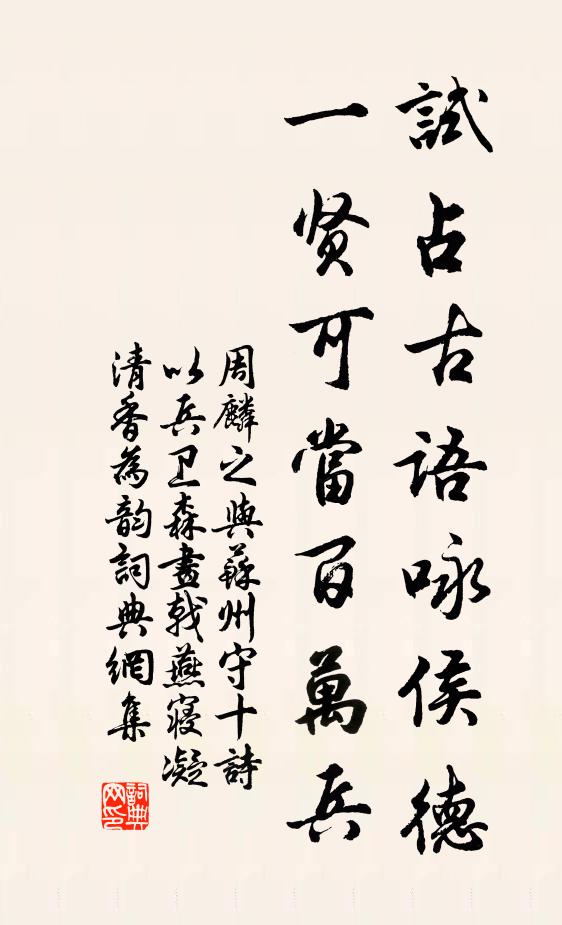 試占古語咏侯德
一贤可當百萬兵
周麟之與蘇州守十詩
以兵卫森畫戟燕寢凝
清香為韵詞典網集
詞典网印